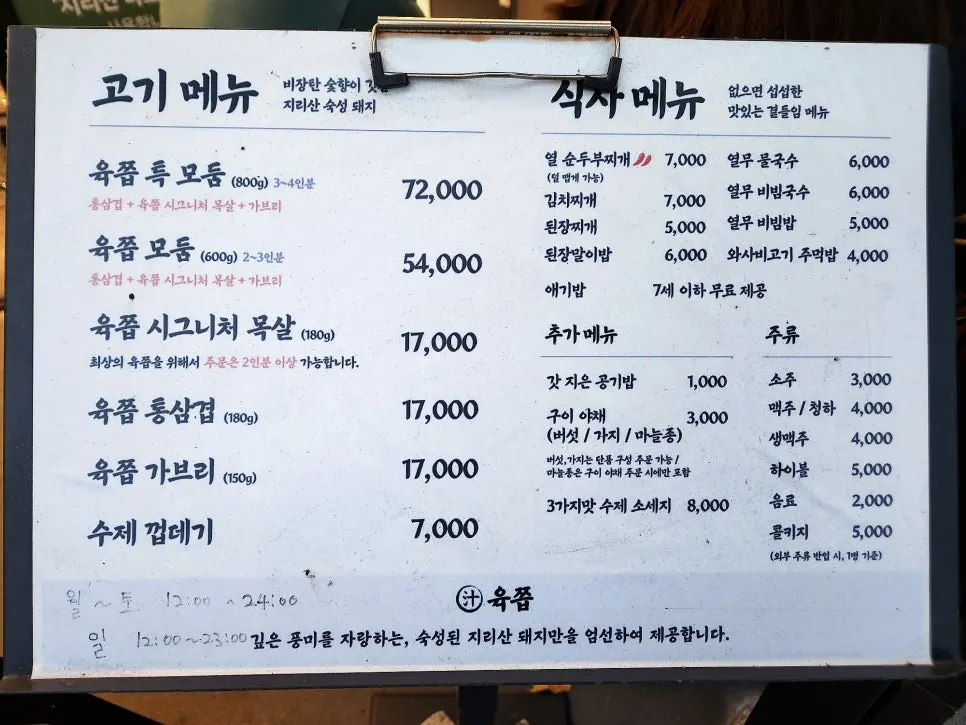 고기 메뉴
비장탄 숯향이
지리산 숙성 돼지
육쯥 특 모둠 (800g) 3~4인분 72,000
통삼겹 + 육쯥 시그니처 목살 + 가브리
육쯥 모둠 (600g) 2~3인분 54,000
통삼겹 + 육쯥 시그니처 목살 + 가브리
육쯥 시그니처 목살 (180g) 17,000
최상의 육쯥을 위해서 주문은 2인분 이상 가능합니다.
육쯥 통삼겹 (180g) 17,000
육쯥 가브리 (150g) 17,000
수제 껍데기 7,000
식사 메뉴
없으면 섭섭한
맛있는 곁들임 메뉴
열 순두부찌개 7,000
(덜 맵게 가능)
김치찌개 7,000
된장찌개 5,000
된장말이밥 6,000
애기밥 7세 이하 무료 제공
열무 물국수 6,000
열무 비빔국수 6,000
열무 비빔밥 5,000
와사비고기 주먹밥 4,000
추가 메뉴
갓 지은 공기밥 1,000
구이 야채 3,000
(버섯 / 가지 / 마늘종)
버섯,가지는 단품 구성 주문 가능 /
마늘종은 구이 야채 주문 시에만 포함
3가지맛 수제 소세지 8,000
주류
소주 3,000
맥주 / 청하 4,000
생맥주 4,000
하이볼 5,000
음료 2,000
콜키지 5,000
(외부 주류 반입 시, 1병 기준)
월 ~ 토 12:00 ~ 24:00
일 12:00~23:00
汁 육쯥
깊은 풍미를 자랑하는, 숙성된 지리산 돼지만을 엄선하여 제공합니다.